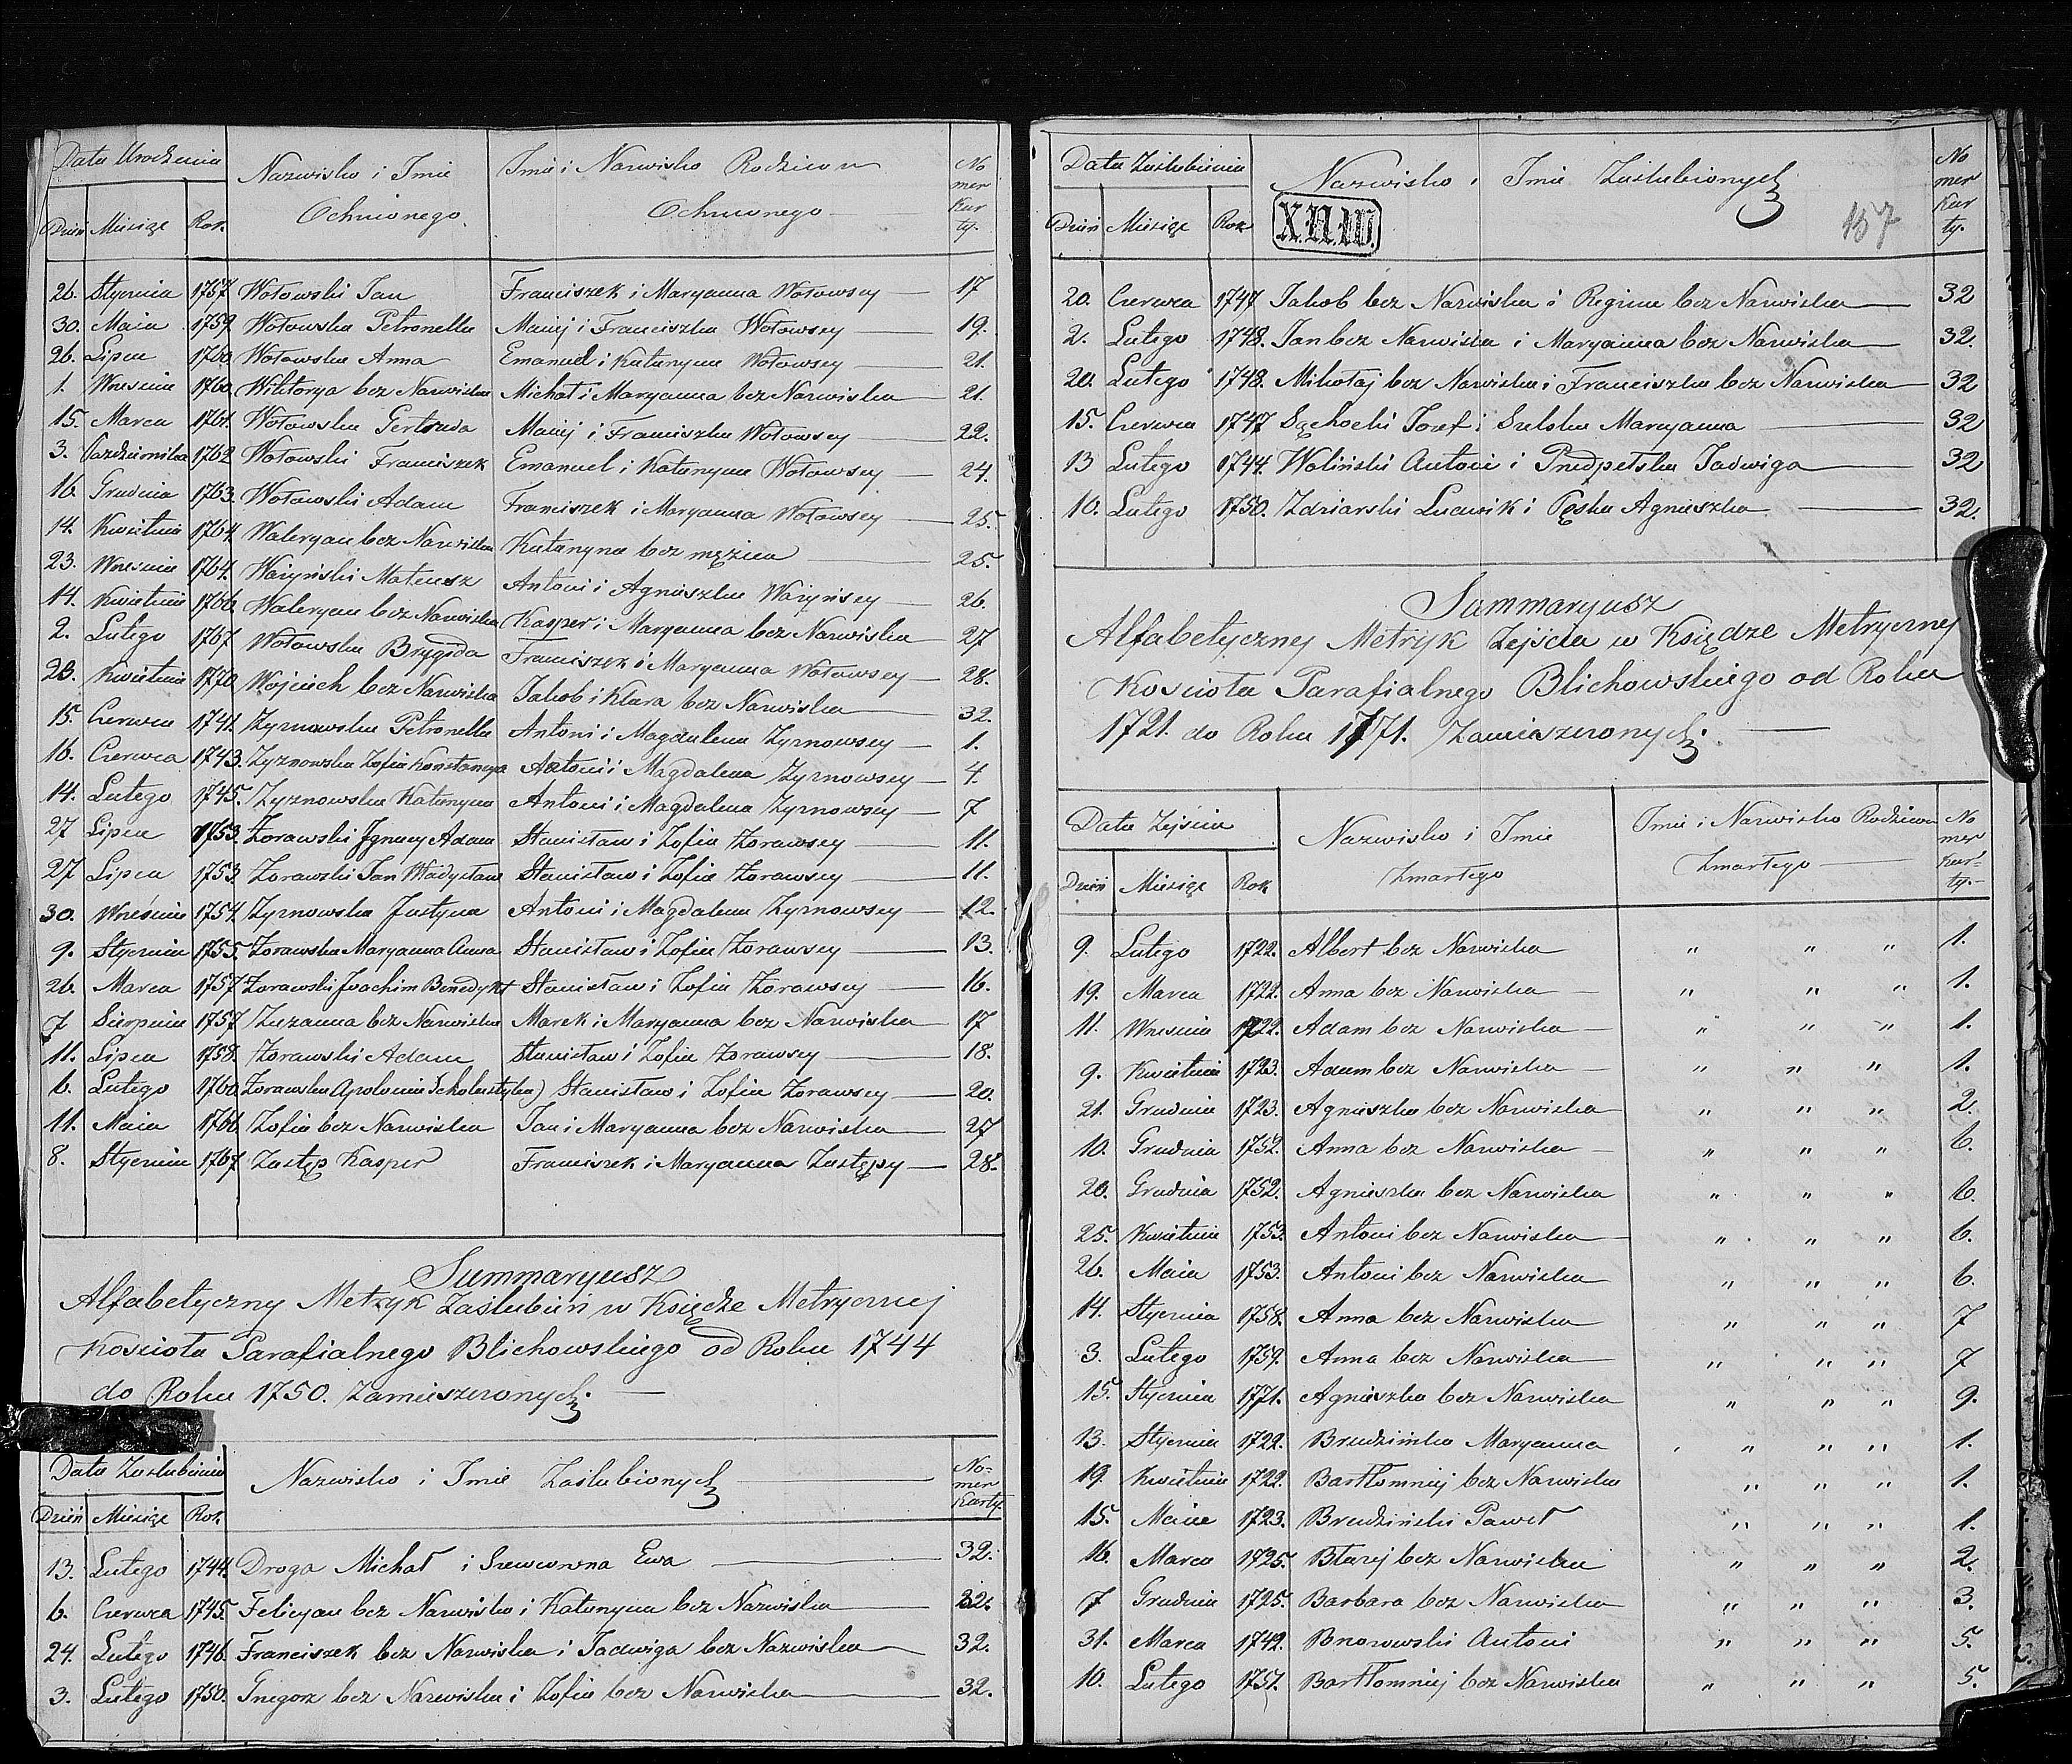 Data Urodzenia Nazwisko i Imie Imie i Nazwisko Rodziców No
Ochrzconego Ochrzconego mer
Dzień Miesiąc Rok Kar
ty.
26. Stycznia 1757 Wołowski Jan Franciszek i Maryanna Wołowscy — 17
30. Maia 1759. Wołowska Petronella Maciej i Franciszka Wołowscy — 19.
26. Lipca 1760. Wołowska Anna Emanuel i Katarzyna Wołowscy — 21.
1. Wrześnie 1760. Wiktorya bez Nazwiska Michał i Maryanna bez Nazwiska — 21.
15. Marca 1761. Wołowska Gertruda Maciej i Franciszka Wołowscy — 22.
3. Października 1762 Wołowski Franciszek Emanuel i Katarzyna Wołowscy — 24.
16 Grudnia 1763. Wołowski Adam Franciszek i Maryanna Wołowscy — 25.
14. Kwietnia 1764. Waleryan bez Nazwiska Katarzyna bez mężna — 25.
23. Wrześnie 1764. Ważyński Mateusz Antoni i Agnieszka Ważyńscy — 26.
14. Kwietnia 1766. Waleryan bez Nazwiska Kasper i Maryanna bez Nazwiska — 27
2. Lutego 1767 Wołowska Brygida Franciszek i Maryanna Wołowscy — 28.
23. Kwietnia 1770 Wojciech bez Nazwiska Jakob i Klara bez Nazwiska — 32.
15. Czerwca 1741. Zyznowska Petronella Antoni i Magdalena Zyznowscy — 1.
16. Czerwca 1743. Zyznowska Zofia Konstancya Antoni i Magdalena Zyznowscy — 4.
14. Lutego 1745. Zyznowska Katarzyna Antoni i Magdalena Zyznowscy — 7
27 Lipca 1753. Zorawski Ignacy Adam Stanisław i Zofia Zorawscy — 11.
27 Lipca 1753. Zorawski Jan Władysław Stanisław i Zofia Zorawscy — 11.
30. Wrześnie 1754. Zyznowska Justyna Antoni i Magdalena Zyznowscy — 12.
9. Stycznia 1755. Zorawska Maryanna Anna Stanisław i Zofia Zorawscy — 13.
26. Marca 1757 Zorawski Joachim Benedykt Stanisław i Zofia Zorawscy — 16.
7 Sierpnia 1757 Zuzanna bez Nazwiska Marek i Maryanna bez Nazwiska — 17
11. Lipca 1758. Zorawski Adam Stanisław i Zofia Zorawscy — 18.
6. Lutego 1760. Zorawska Apolonia Scholastyka) Stanisław i Zofia Zorawscy — 20.
11. Maia 1766. Zofia bez Nazwiska Jan i Maryanna bez Nazwiska — 27
8. Stycznia 1767 Zastęp Kasper Franciszek i Maryanna Zastępy — 28.
Summaryusz
Alfabetyczny Metryk Zaślubiń w Księdze Metryczney
Kościoła Parafialnego Blichowskiego od Roku 1744
do Roku 1750. Zamieszczonych. —
Data Zaślubienia Nazwisko i Imie Zaślubionych — No=
mer
Dzień Miesiąc Rok Karty.
13. Lutego 1744. Droga Michał i Szewcowna Ewa — 32.
6. Czerwca 1745. Felicyan bez Nazwiska i Katarzyna bez Nazwiska — 32.
24. Lutego 1746. Franciszek bez Nazwiska i Jadwiga bez Nazwiska — 32.
3. Lutego 1750. Grzegorz bez Nazwiska i Zofia bez Nazwiska — 32.
Data Zaślubienia Nazwisko i Imie Zaślubionych No
mer
Dzień Miesiąc Rok X.П.W. 157 Kar
ty.
20. Czerwca 1747 Jakob bez Nazwiska i Regina bez Nazwiska — 32
2. Lutego 1748. Jan bez Nazwiska i Maryanna bez Nazwiska — 32.
20. Lutego 1748. Mikołaj bez Nazwiska i Franciszka bez Nazwiska — 32
15. Czerwca 1747 Sęchocki Jozef i Sulska Maryanna — 32
13 Lutego 1744. Woliński Antoni i Przedpełska Jadwiga — 32
10. Lutego 1750. Zdziarski Ludwik i Pęska Agnieszka — 32.
Summaryusz
Alfabetyczney Metryk Zejścia w Księdze Metryczney
Kościoła Parafialnego Blichowskiego od Roku
1721. do Roku 1771. Zamieszczonych. —
Data Zejścia Nazwisko i Imie Imie i Nazwisko Rodziców No
mer
Dzień Miesiąc Rok Zmarłego Zmarłego — Kar=
ty.—
9. Lutego 1722. Albert bez Nazwiska " " " 1.
19. Marca 1722. Anna bez Nazwiska — " " " 1.
11. Wrześnie 1722. Adam bez Nazwiska — " " " 1.
9. Kwietnia 1723. Adam bez Nazwiska — " " " 1.
21. Grudnia 1723. Agnieszka bez Nazwiska " " " 2.
10. Grudnia 1752. Anna bez Nazwiska — " " " 6.
20. Grudnia 1752. Agnieszka bez Nazwiska " " " 6.
25. Kwietnia 1753. Antoni bez Nazwiska — " " " 6.
26. Maia 1753. Antoni bez Nazwiska " " " 6.
14. Stycznia 1758. Anna bez Nazwiska " " " 7
3. Lutego 1759. Anna bez Nazwiska — " " " 7
15. Stycznia 1771. Agnieszka bez Nazwiska " " " 9.
13. Stycznia 1722. Brudzińska Maryanna " " " 1.
19. Kwietnia 1722. Bartłomniej bez Nazwiska " " " 1.
15. Maia 1723. Brudziński Paweł " " " 1.
16. Marca 1725. Błazej bez Nazwiska " " " 2.
7 Grudnia 1725. Barbara bez Nazwiska " " " 3.
31. Marca 1742. Bnorowski Antoni " " " 5.
10. Lutego 1751. Bartłomniej bez Nazwiska " " " 5.